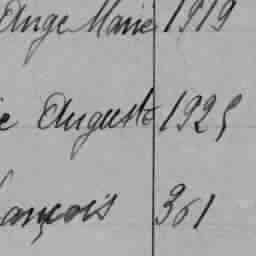 Ange Marie 1919
e Auguste 1925
ançois 361